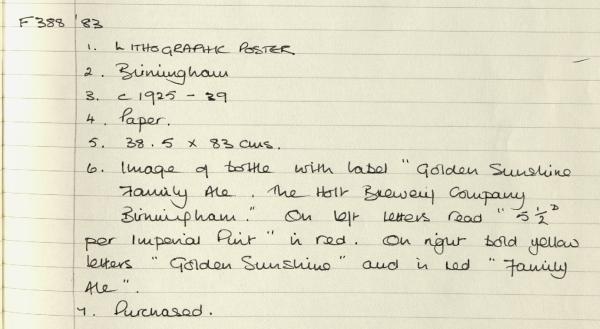 F388 '83
1. LITHOGRAPHIC POSTER
2. Birmingham
3. c 1925 - 39
4. Paper.
5. 38.5 x 83 cms.
6. Image of bottle with label "Golden Sunshine
Family Ale. The Holt Brewery Company
Birmingham." On left letters read "5 1/2 D
per Imperial Pint" in red. On right bold yellow
letters "Golden Sunshine" and in red "Family
Ale".
7. Purchased.